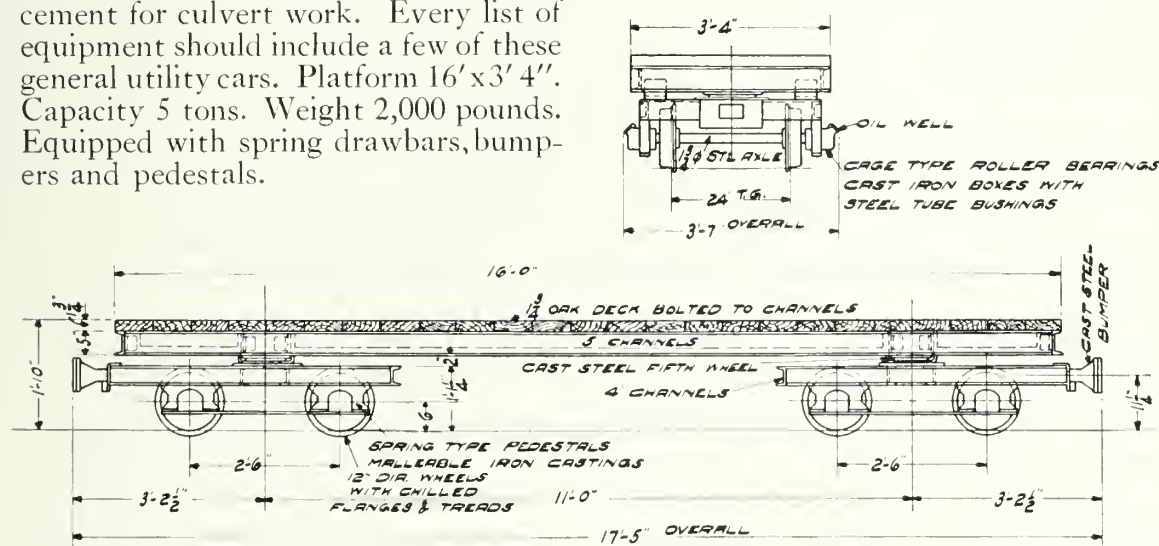 cement for culvert work. Every list of
equipment should include a few of these
general utility cars. Platform 16′x3′ 4″.
Capacity 5 tons. Weight 2,000 pounds.
Equipped with spring drawbars, bump-
ers and pedestals.
3'-4"
OIL WELL
1 3/4 Ø STL AXLE
CAGE TYPE ROLLER BEARINGS
CAST IRON BOXES WITH
STEEL TUBE BUSHINGS
24" T.G.
3'-7 OVERALL
16'-0"
CAST STEEL
BUMPER
1 3/4
1 3/4 OAK DECK BOLTED TO CHANNELS
5
5 CHANNELS
2
CAST STEEL FIFTH WHEEL
1'-10"
1'-1 1/4
4 CHANNELS
11 1/4
6
SPRING TYPE PEDESTALS
MALLEABLE IRON CASTINGS
2'-6"
2'-6"
12" DIA. WHEELS
WITH CHILLED
FLANGES & TREADS
3'-2 1/2"
11'-0"
3'-2 1/2"
17'-5" OVERALL